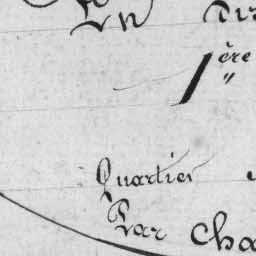 En
1ère
"
Quartier
Par Cha